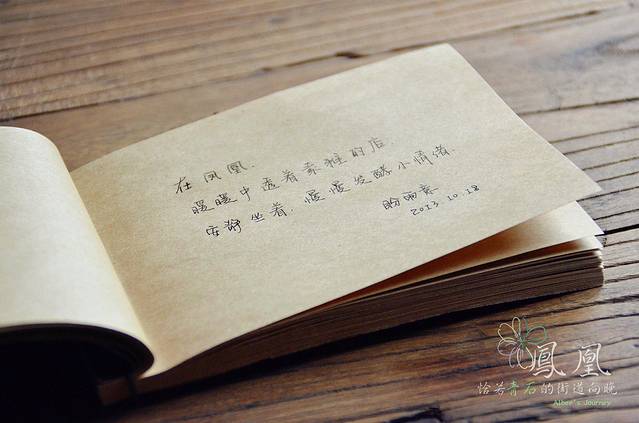 在凤凰.
暖暖中透着素雅的店
安静坐着.慢慢发酵小情绪.
盼雨亭
2013.10.18
鳳凰
恰若青石的街道向晚
Albee's Journey